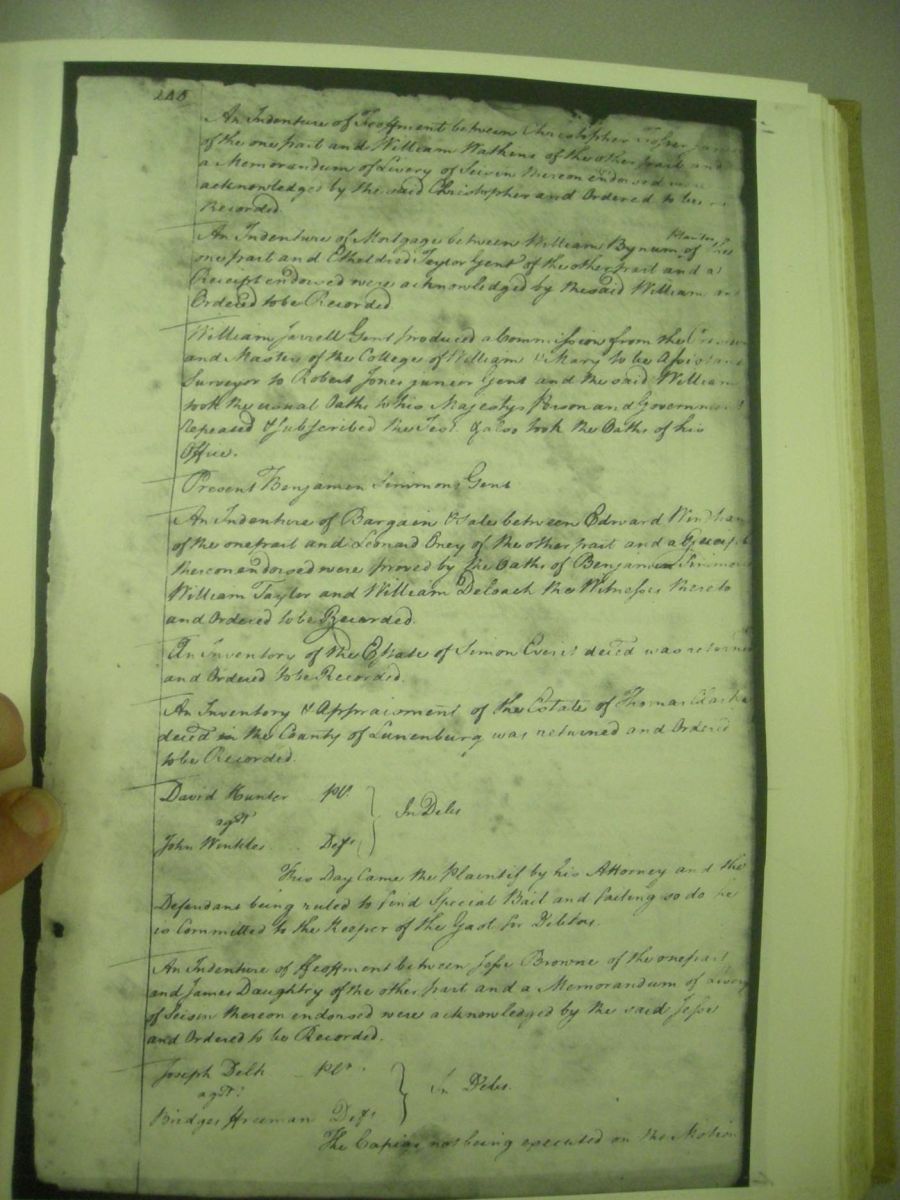 An Indenture of Feoffment between Christopher
of the one part and William Watkins of the other part and
a Memorandum of Livery of Seisin thereon endorsed were
acknowledged by the said Christopher and Ordered to be
Recorded
An Indenture of Mortgage between William Bynum Planter of the
one part and Etheldred Taylor Gent of the other part and a
Receipt endorsed were acknowledged by the said William and
Ordered to be Recorded
William Jarrell Gent produced a Commission from the
and Master of the College of William & Mary to be Assistant
Surveyor to Robert Jones junior Gent and the said William
took the usual Oaths to his Majestys Person and Government
Repeated & Subscribed the Test & also took the Oaths of his
Office.
Present Benjamin Simmons Gent
An Indenture of Bargain & Sale between Edward Windham
of the one part and Leonard Oney of the other part and a Receipt
thereon endorsed were proved by the Oaths of Benjamin Simmons
William Taylor and William Deloach the Witnesses thereto
and Ordered to be Recorded.
An Inventory of the Estate of Simon Everit deced was returned
and Ordered to be Recorded.
An Inventory & Appraisment of the Estate of Thomas
deced in the County of Lunenburg was returned and Ordered
to be Recorded.
David Hunter Plt.
agst In Debt
John Winkles Deft
This Day Came the Plaintif by his Attorney and the
Defendant being ruled to find Special Bail and failing so do he
is Committed to the Keeper of the Gaol for Debtors.
An Indenture of Feoffment between Jesse Browne of the one part
and James Daughtry of the other part and a Memorandum of Livery
of Seisin thereon endorsed were acknowledged by the said Jesse
and Ordered to be Recorded.
Joseph Delk Plt.
agst. In Debt
Bridges Freeman Deft
The Capias not being executed on the Motion